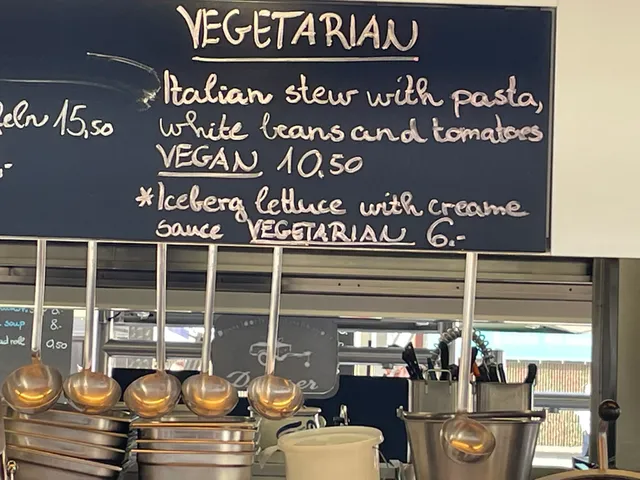 VEGETARIAN
Italian stew with pasta,
white beans and tomatoes
VEGAN 10,50
*Iceberg lettuce with creame
sauce VEGETARIAN 6.-
15,50
soup 8.-
9,50